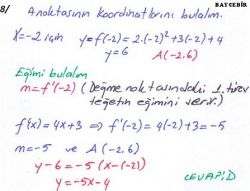 BAYCEBİR
8/ A noktasının koordinatlarını bulalım.
x=-2 için y=f(-2)=2.(-2)²+3(-2)+4
y=6 A(-2,6)
Eğimi bulalım
m=f'(-2) (Değme noktasındaki 1. türev
teğetin eğimini verir.)
f'(x)=4x+3 ⇒ f'(-2)=4(-2)+3=-5
m=-5 ve A(-2,6)
y-6=-5(x-(-2))
y=-5x-4 CEVAP:D